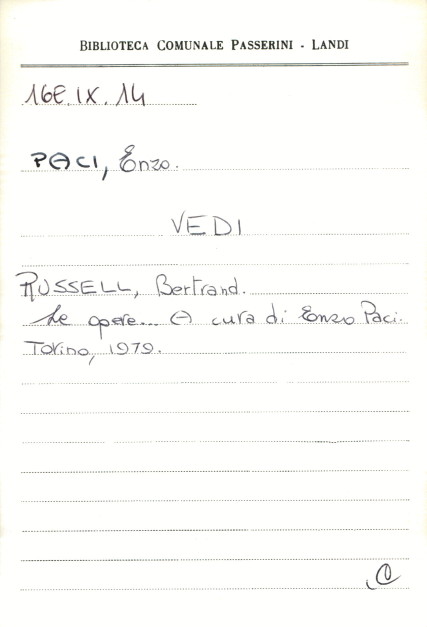 BIBLIOTECA COMUNALE PASSERINI - LANDI
16E.IX.14
PACI, Enzo.
VEDI
RUSSELL, Bertrand.
Le opere... A cura di Enzo Paci.
Torino, 1979.